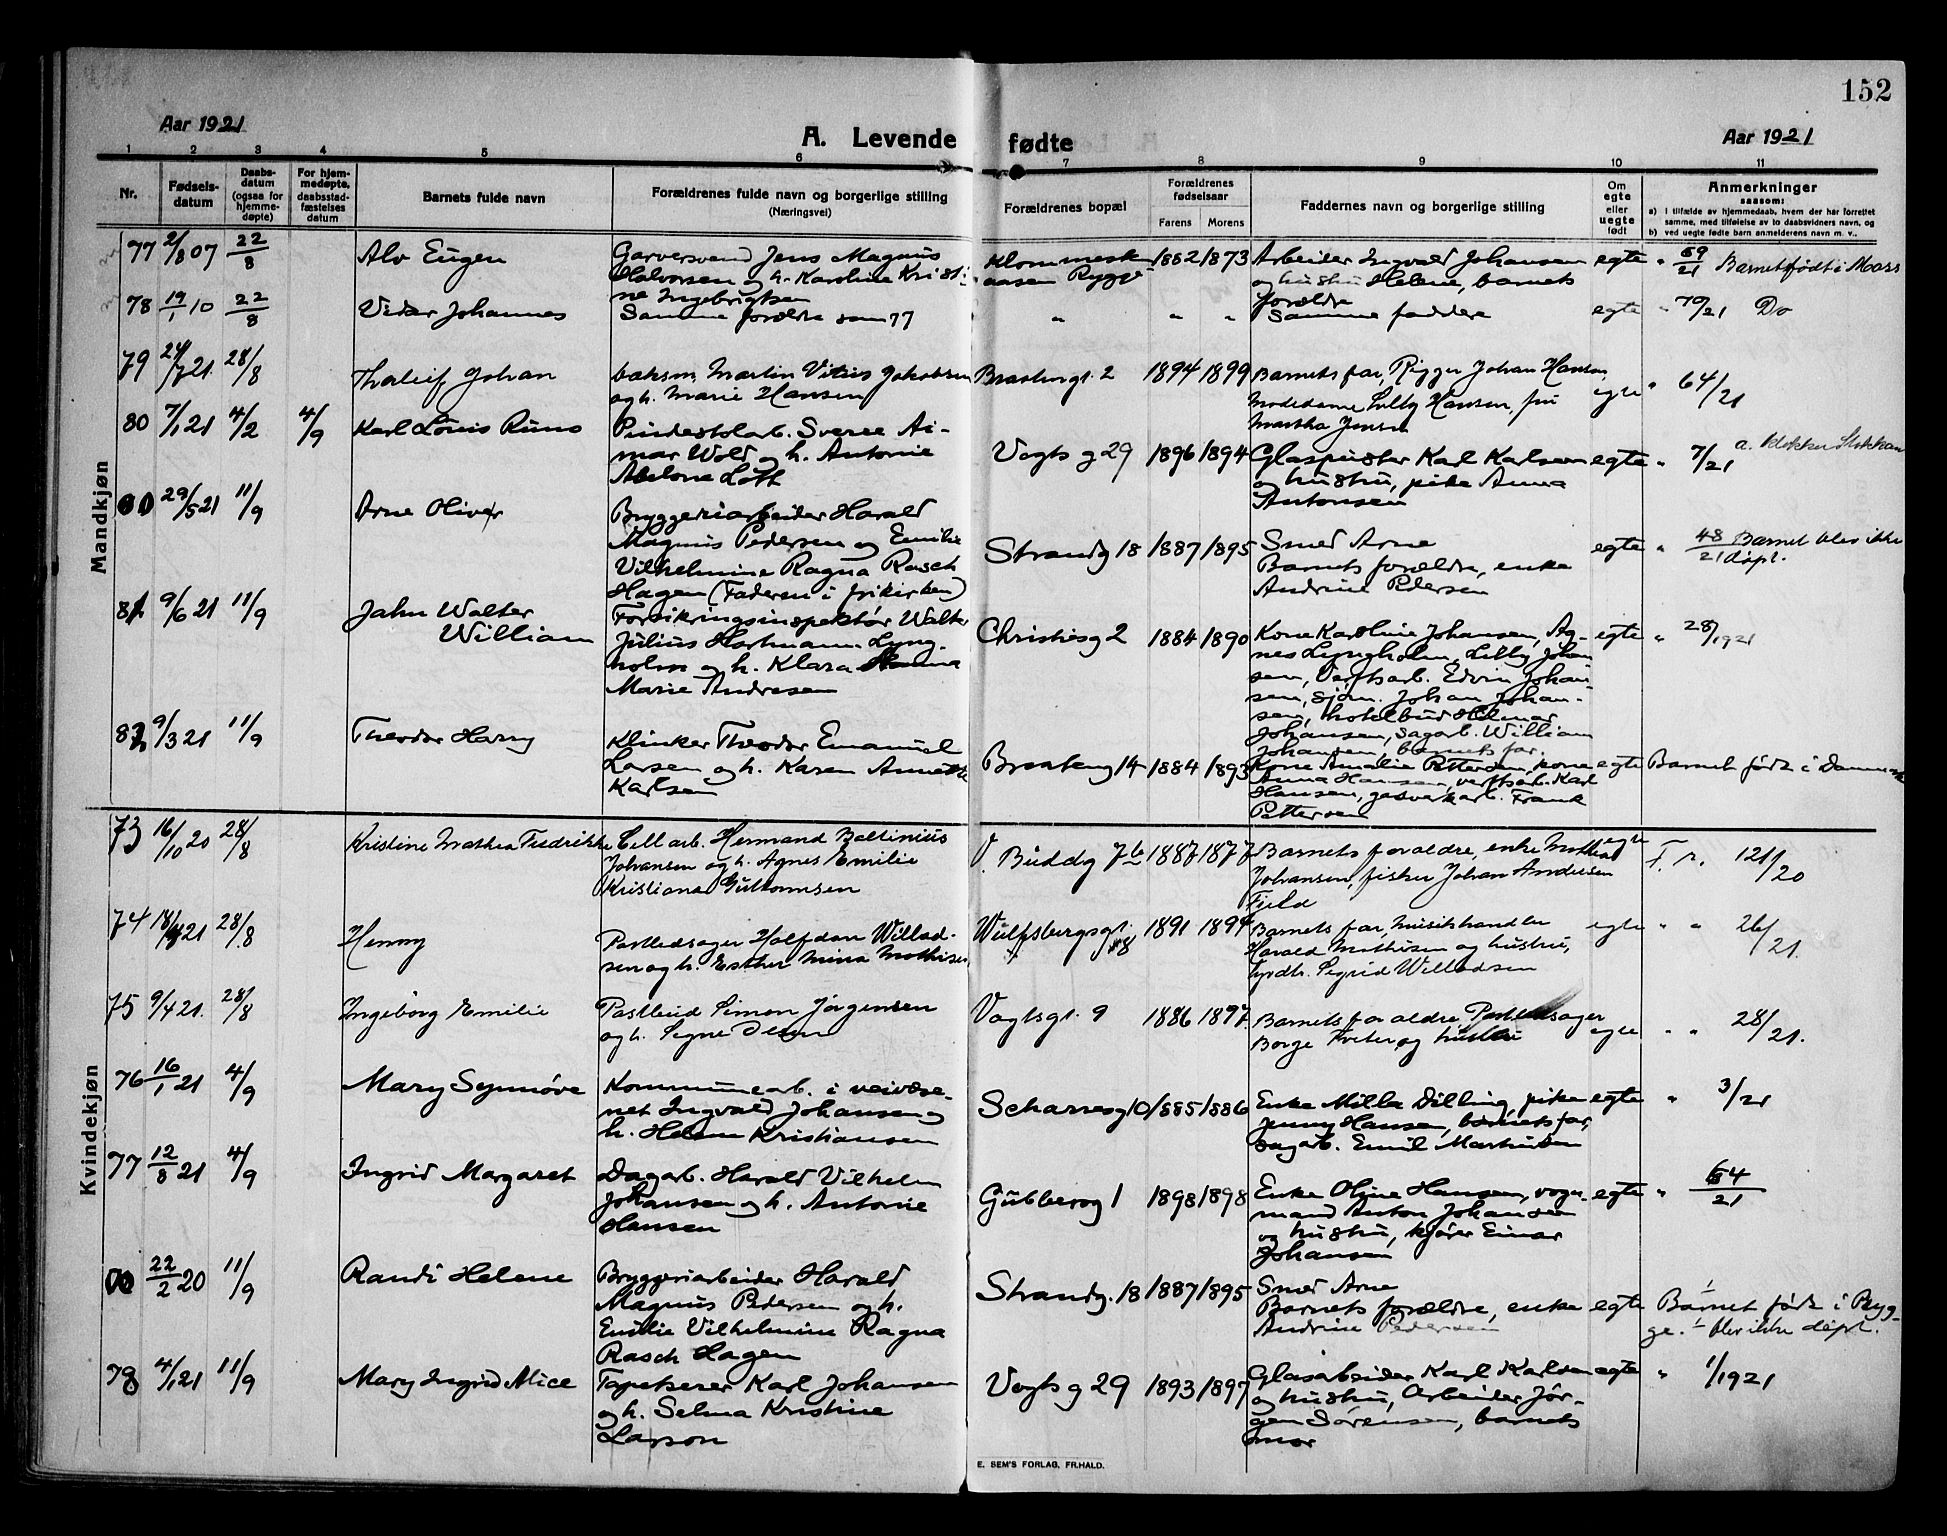 152
Aar 1921
A. Levende fødte
Aar 1921
1 2 3 4 5 6 7 8 9 10 11
Nr.
Fødsels-
datum
Daabs-
datum
(ogsaa for
hjemme-
døpte)
For hjem-
medøpte,
daabsstad-
fæstelses
datum
Barnets fulde navn
Forældrenes fulde navn og borgerlige stilling
(Næringsvei)
Forældrenes bopæl
Forældrenes
fødselsaar
Farens Morens
Faddernes navn og borgerlige stilling
Om
egte
eller
uegte
født
Anmerkninger
saasom:
a) I tilfælde av hjemmedaab, hvem der har forrettet
samme, med tilføielse av to daabsvidners navn, og
b) ved uegte fødte barn anmelderens navn m. v.,
Mandkjøn
77 2/8 07 22/8 Alv Eugen Garversvend Jens Magnus
Halvorsen og h. Karoline Kristi-
ne Ingebrigtsen
aasen Rygge
1882 1873 Arbeider Ingvald Johansen
og hustru Helene, barnets
forældre
egte " 69/21 Barnet født i Moss
78 19/1 10 22/8 Vidar Johannes Samme forældre som 77 " " " Samme faddere egte " 70/21 Do
79 24/7 21. 28/8 Tholeif Johan baksm. Martin Vitus Jakobsen
og h. Marie Hansen
2 1894 1899 Barnets far, Rigger Johan Hansen,
Modedame Lilly Hansen, fru
Martha Jensen
egte " 64/21
80 7/1 21 4/2 4/9 Karl Louis Runo Sverre Ai-
mar Wold og h. Antonie
Abelone Loth
Vogts g 29 1896 1894 Glaspuster Karl Karlsen
og hustru, pike Anna
Antonsen
egte " 7/21 a. klokker
29/5 21 11/9 Arne Oliver Bryggeriarbeider Harald
Magnus Pedersen og Emilie
Vilhelmine Ragna Rasch
Hagen (Faderen i frikirken)
Strandg 18 1887 1895 Smed Arne
Barnets forældre, enke
Andrine Pedersen
egte " 48/21 Barnet blev ikke
døpt.
81 9/6 21 11/9 Jahn Walter
William
Forsikringsinspektør Walter
Julius Hartmann Lyng-
holm og h. Klara
Marie Andresen
Christiesg 2 1884 1890 Kone Karoline Johansen, Ag-
nes Lyngholm, Lilly Johan
sen, Verftsarb. Edvin Johan-
sen, sjøm. Johan Johan-
sen, hotelbud Hilmar
Johansen, sagarb. William
Johansen, barnets far.
egte " 28/1921
82 9/3 21 11/9 Theodor Harry Klinker Theodor Emanuel
Larsen og h. Karen Annette
Karlsen
Braateng 14 1884 1893 Kone Amalie Pettersen, kone
Anna Hansen, verftsarb. Karl
Hansen, gasverkarb. Frank
Pettersen
egte Barnet født i Danmark
Kvindekjøn
73 16/10 20 28/8 Kristine Mathea Fredrikke Cell arb. Hermand Baltinius
Johansen og h. Agnes Emilie
Kristiana Guttormsen
V. Buddg 7b 1887 1877 Barnets forældre, enke Mathea
Johansen, fisker Johan Andersen
Fjeld
egte F. r. 121/20
74 18/4 21 28/8 Henny Postledsager Halfdan Willad-
sen og h. Esther Mina Mathisen
Wulfsbergsgt.
18
1891 1894 Barnets far, musikhandler
Harald Mathisen og hustru,
Sigrid Willadsen
egte " " 26/21.
75 9/4 21. 28/8 Ingeborg Emilie Postbud Simon Jørgensen
og h. Signe Olsen
Vogtsgt. 9 1886 1897 Barnets forældre Postledsager
Borge Kveter og hustru
egte " " 28/21.
76 16/1 21 4/9 Mary Synnøve Kommunearb. i veivæse-
net Ingvald Johansen og
h. Helene Kristiansen
Scharresg 10 1885 1886 Enke Milla Dilling, pike
Jenny Hansen, barnets far,
sagarb. Emil Martinsen
egte " 3/21
77 12/8 21 4/9 Ingrid Margaret Dagarb. Harald Vilhelm
Johansen og h. Antonie
Hansen
Gubberog 1 1898 1898 Enke Oline Hansen, vogn-
mand Anton Johansen
og hustru, kjører Einar
Johansen
egte " 64/21
22/2 20 11/9 Randi Helene Bryggeriarbeider Harald
Magnus Pedersen og h.
Emilie Vilhelmine Ragna
Rasch Hagen
Strandg. 18 1887 1895 Smed Arne
Barnets forældre, enke
Andrine Pedersen
egte Barnet født i Ryg-
ge. blev ikke døpt.
78 4/1 21 11/9 Mary Ingrid Alice Tapetserer Karl Johansen
og h. Selma Kristine
Larson
Vogts g 29 1893 1897 Glasarbeider Karl Karlsen
og hustru, Arbeider Jør-
gen Sørensen, barnets
mor
egte " 1/1921
E. SEM'S FORLAG, FR.HALD.